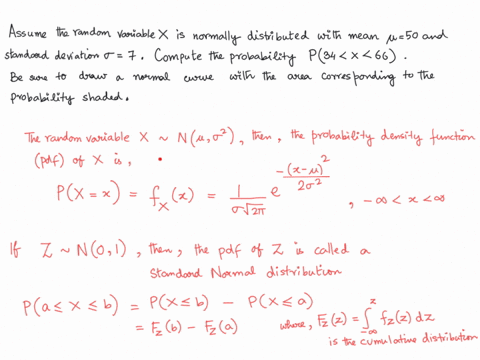 Assume the random variable X is normally distributed with mean μ=50 and
standard deviation σ = 7. Compute the probability P(34 < X < 66).
Be sure to draw a normal curve with the area corresponding to the
probability shaded.
The random variable X ~ N(μ, σ²), then, the probability density function
(pdf) of X is,
P(X = x) = f_X(x) = 1/(σ√2π) e^(-(x-μ)²/2σ²) , -∞ < x < ∞
If Z ~ N(0,1), then, the pdf of Z is called a
Standard Normal distribution
P(a ≤ X ≤ b) = P(X ≤ b) - P(X ≤ a)
= F_Z(b) - F_Z(a) where, F_Z(z) = ∫_{-∞}^{z} f_Z(z) dz
is the cumulative distribution